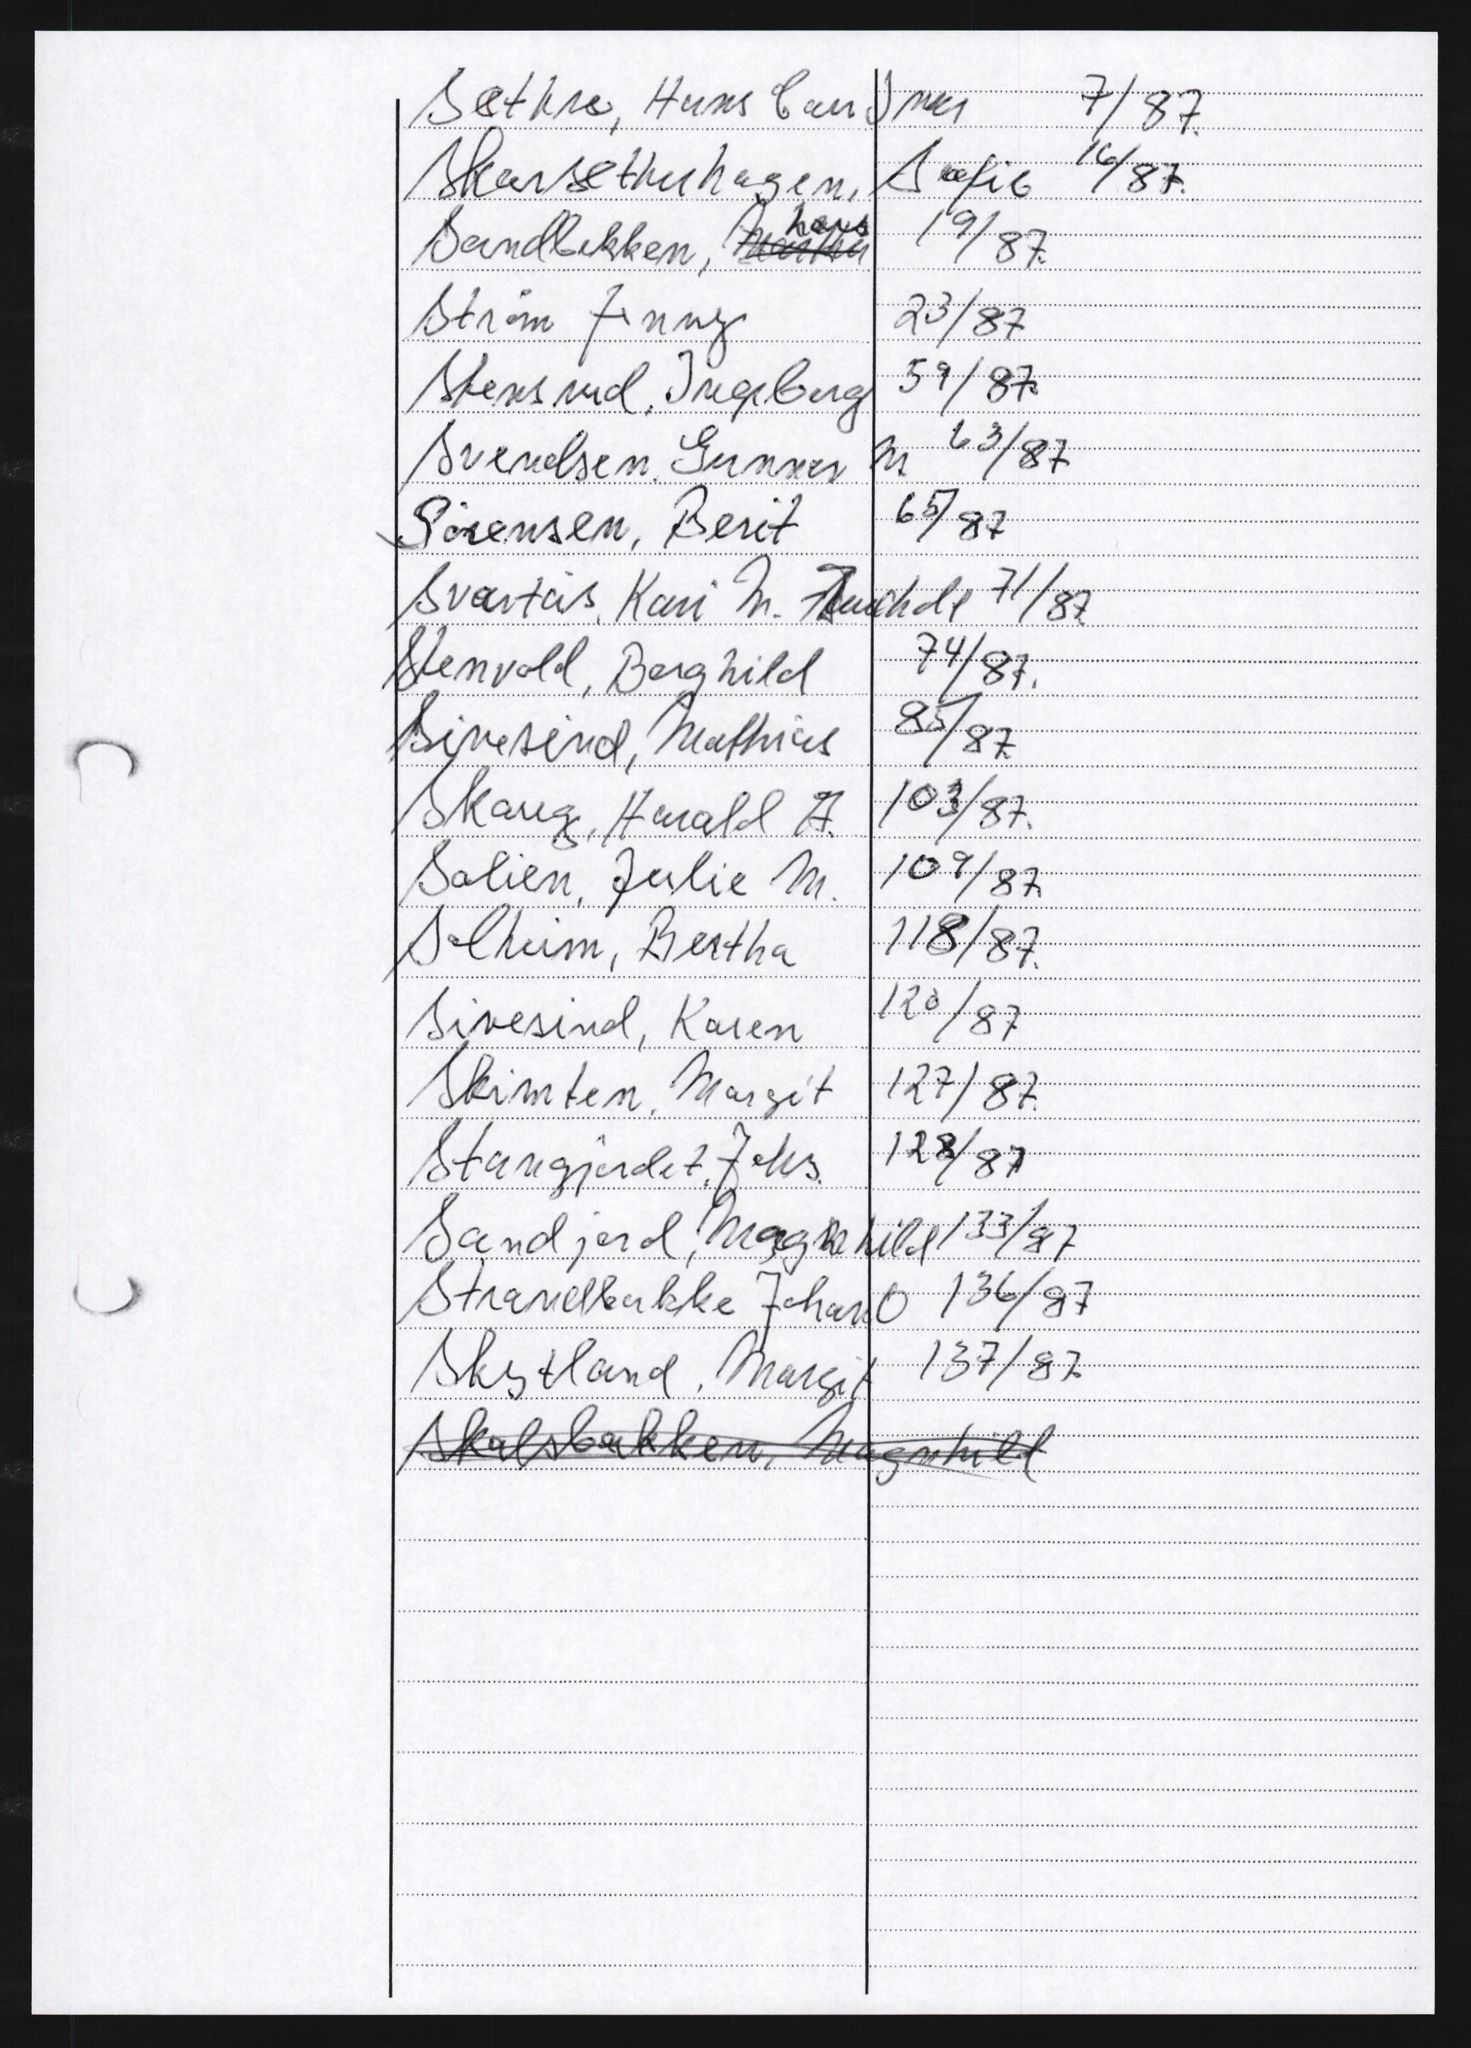 Sæthre, Hans Carl Imar 7/87.
Skarsæterhagen, Sofie 16/87.
Sandbekken, Hans 19/87.
Strøm Jenny 23/87
Stensrud, Ingeborg 59/87.
Svendsen, Gunnar M. 63/87
Sörensen, Berit 65/87
Svartås, Kari M. 71/87
Stenvold, Borghild 74/87.
Sivesind, Mathias 85/87.
Skaug, Harald A. 103/87.
Solien, Julie M. 109/87.
Solheim, Bertha 118/87.
Sivesind, Karen 120/87
Skimten, Margit 127/87.
Stangjordet, Johs. 128/87
Sandjord, Magnhild 133/87
Strandbakke Johan O 136/87
Skytland, Margit 137/87.
Skalsbakken, Magnhild